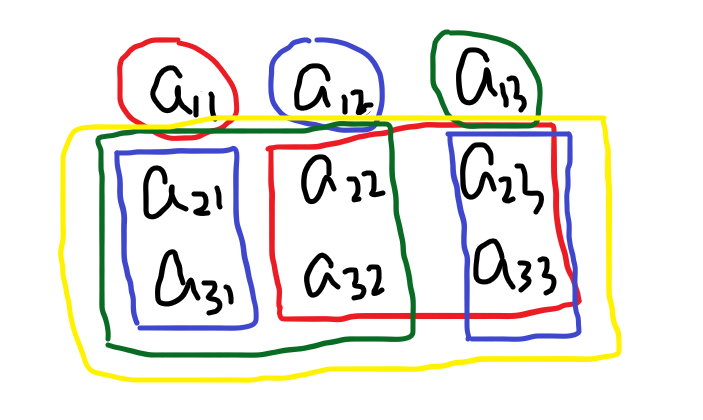 a₁₁ a₁₂ a₁₃
a₂₁ a₂₂ a₂₃
a₃₁ a₃₂ a₃₃